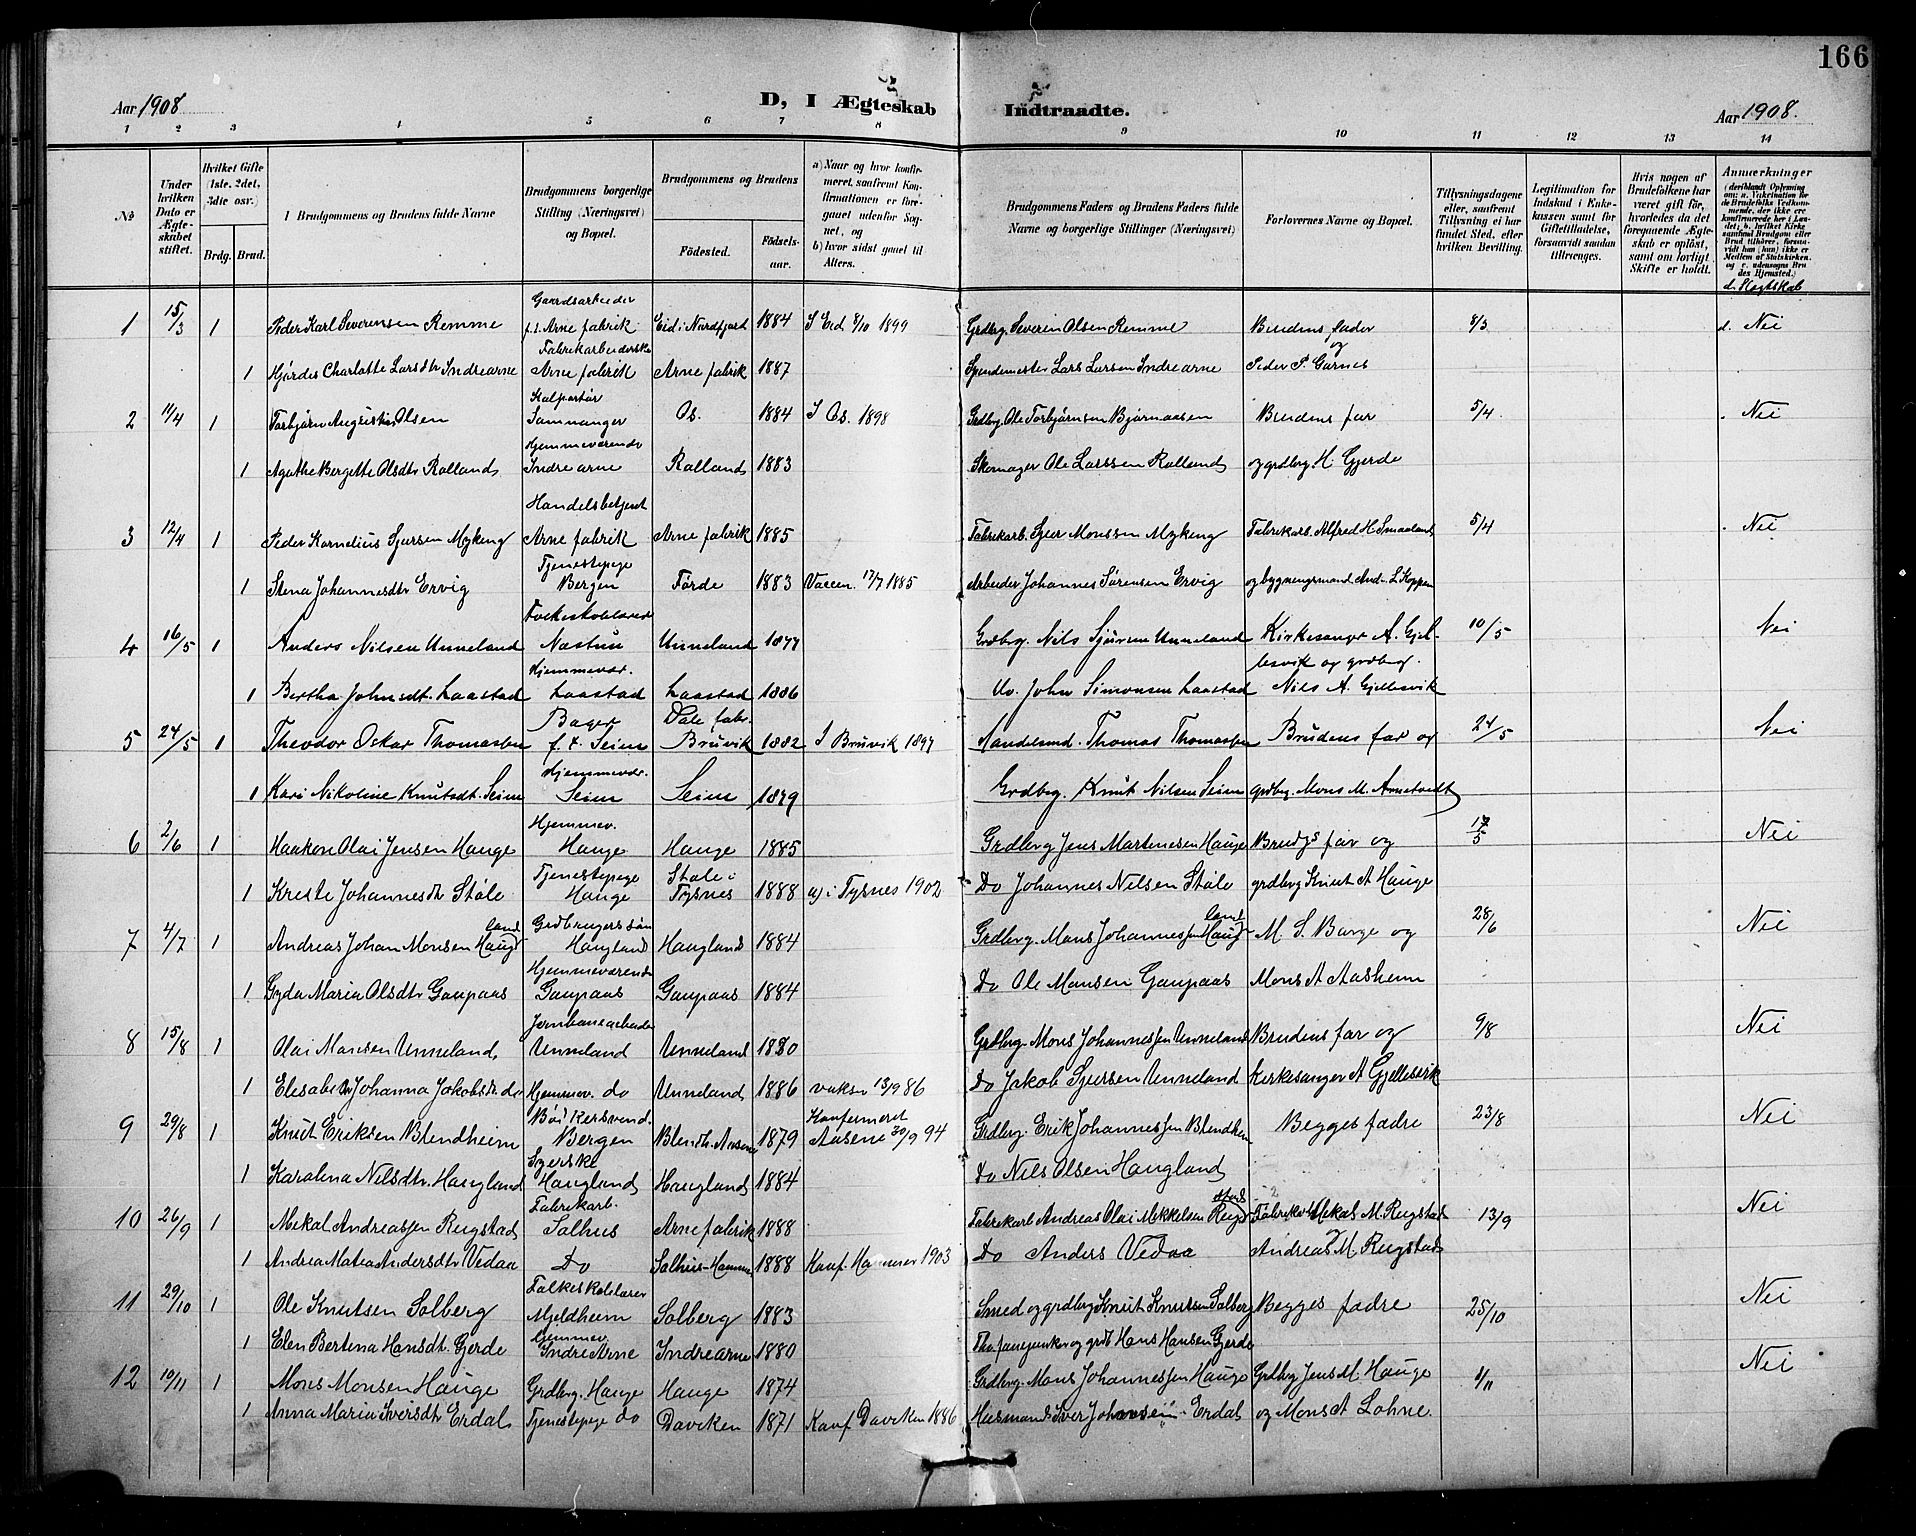 166
Aar 1908
D, I Ægteskab Indtraadte.
Aar 1908.
1 2 3 4 5 6 7 8 9 10 11 12 13 14
No
Under hvilken Dato er Ægteskabet stiftet.
Hvilket Gifte (1ste, 2det, 3die osv.)
Brdg. Brud.
Brudgommens og Brudens fulde Navne
Brudgommens borgerlige Stilling (Næringsvei) og Bopæl.
Brudgommens og Brudens
Fødested.
Fødselsaar.
a) Naar og hvor konfirmeret, saafremt Konfirmationen er foregaaet udenfor Sognet, og
b) hvor sidst gaaet til Alters.
Brudgommens Faders og Brudens Faders fulde Navne og borgerlige Stillinger (Næringsvei)
Forlovernes Navne og Bopæl.
Tillysningsdagene eller, saafremt Tillysning ei har fundet Sted, efter hvilken Bevilling.
Legitimation for Indskud i Enkekassen samt for Giftetilladelse, forsaavidt saadan tiltrænges.
Hvis nogen af Brudefolkene har været gift før, hvorledes da det foregaaende Ægteskab er opløst, samt om lovligt Skifte er holdt.
Anmærkninger
d. Slegtskab
1 15/3 1 Peder Karl Severensen Remme Gaardsarbeider f. t. Arne fabrik Eid i Nordfjord 1884 I Eid 8/10 1899 Grdbrg. Severin Olsen Remme Brudens fader og 8/3 d. Nei
1 Hjørdis Charlotte Larsdtr Indrearne Fabrikarbeiderske Arne fabrik Arne fabrik 1887 Spindemester Lars Larsen Indrearne Peder P. Garnes
2 11/4 1 Torbjørn Augustin Olsen Kolportør Samnanger Os. 1884 I Os. 1898 Grdbrg. Ole Torbjørnsen Bjørnaasen Brudens far 5/4 Nei
1 Agathe Bergette Olsdtr Rolland Hjemmeværende Indre arne Rolland 1883 Skomager Ole Larssen Rolland og grdbrg. H. Gjerde
3 12/4 1 Peder Kornelius Sjursen Myking Handelsbetjent Arne fabrik Arne fabrik 1885 Fabrikarb. Sjur Monssen Myking Fabrikarb. Alfred H. Smaaland 5/4 Nei
1 Stena Johannesdtr Ervig Tjenestepige Bergen Førde 1883 Vaccin. 17/7 1885 Arbeider Johannes Sørensen Ervig og bygningsmand And. L. Koppen
4 16/5 1 Anders Nilsen Unneland Folkeskolelærer Næstun Unneland 1877 Grdbrg. Nils Sjursen Unneland Kirkesanger A. Gjel- 10/5 Nei
lesvik og grdbrg.
1 Bertha Johnsdt. Laastad Hjemmevær. Laastad Laastad 1886 Uv. John Simonsen Laastad Nils A. Gjellesvik
5 24/5 1 Theodor Oskar Thomassen Bager f. t. Seim Dale fabr. Bruvik 1882 I Bruvik 1897 Handelsmd. Thomas Thomassen Brudens far og 24/5 Nei
1 Kari Nikoline Knutsdt. Seim Hjemmevær. Seim Seim 1879 Grdbrg. Knut Nilsen Seim grdbrg. Mons M. Arnetvedt
6 2/6 1 Haakon Olai Jensen Hauge Hjemmev. Hauge Hauge 1885 Grdbrg Jens Martinesen Hauge Brudgs far og 17/5 Nei
1 Kreste Johannesdtr Ståle Tjenestepige Hauge Ståle i Tysnes 1888 a) i Tysnes 1902 Do Johannes Nilsen Ståle grdbrg Knut A Hauge
7 4/7 1 Andreas Johan Monsen Haugland Grdbrugers søn Haugland Haugland 1884 Grdbrg. Mons Johannessen Haugland M. S. Borge og 28/6 Nei
1 Gyda Maria Olsdtr Gaupaas Hjemmeværende Gaupaas Gaupaas 1884 Do Ole Monsen Gaupaas Mons A Aasheim
8 15/8 1 Olai Monsen Unneland Jernbanearbeider Unneland Unneland 1880 Grdbrg. Mons Johannessen Unneland Brudens far og 9/8 Nei
1 Elisabeth Johanna Jakobsdtr do Hjemmev. do Unneland 1886 vaksin 13/9 86 Do Jakob Sjursen Unneland kirkesanger A Gjellesvik
9 29/8 1 Knut Eriksen Blendheim Bødkersvend. Bergen Blendh. Aasene 1879 Konfirmeret Aasene 30/9 94 Grdbrg. Erik Johannessen Blendheim Begges fædre 23/8 Nei
1 Karolina Nilsdtr. Haugland Syerske Haugland Haugland 1884 Do Nils Olsen Haugland
10 26/9 1 Mikal Andreassen Rugstad Fabrikarb. Salhus Arne fabrik 1888 Fabrikarb Andreas Olai Mikkelsen Rugstad Fabrikarb Mikal M. Rugstad 13/9 Nei
1 Andrea Matea Andersdtr Vedaa Do Salhus-Hamre 1888 Konf. Hammer 1903 Do Anders Vedaa Andreas M. Rugstad
11 29/10 1 Ole Knutsen Solberg Folkeskolelærer Mjeldheim Solberg 1883 Smed og grdbrg Knut Knutsen Solberg Begges fædre 25/10 Nei
1 Elen Bertina Hansdt. Gjerde Hjemmev. Indre Arne Indrearne 1880 Hans Hansen Gjerde
12 10/11 1 Mons Monsen Hauge Grdbrg. Hauge Hauge 1874 Grdbrg Mons Johannessen Hauge Grdbrg Jens M. Hauge 1/11 Nei
1 Anna Maria Iversdtr Erdal Tjenestepige do Daviken 1871 Konf. Daviken 1886 Husmand Iver Johansen Erdal og Mons A Lohne.